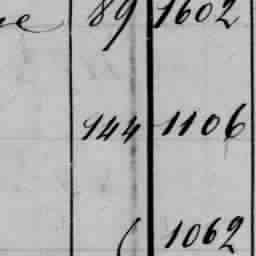 89 1602
144 1106
1062